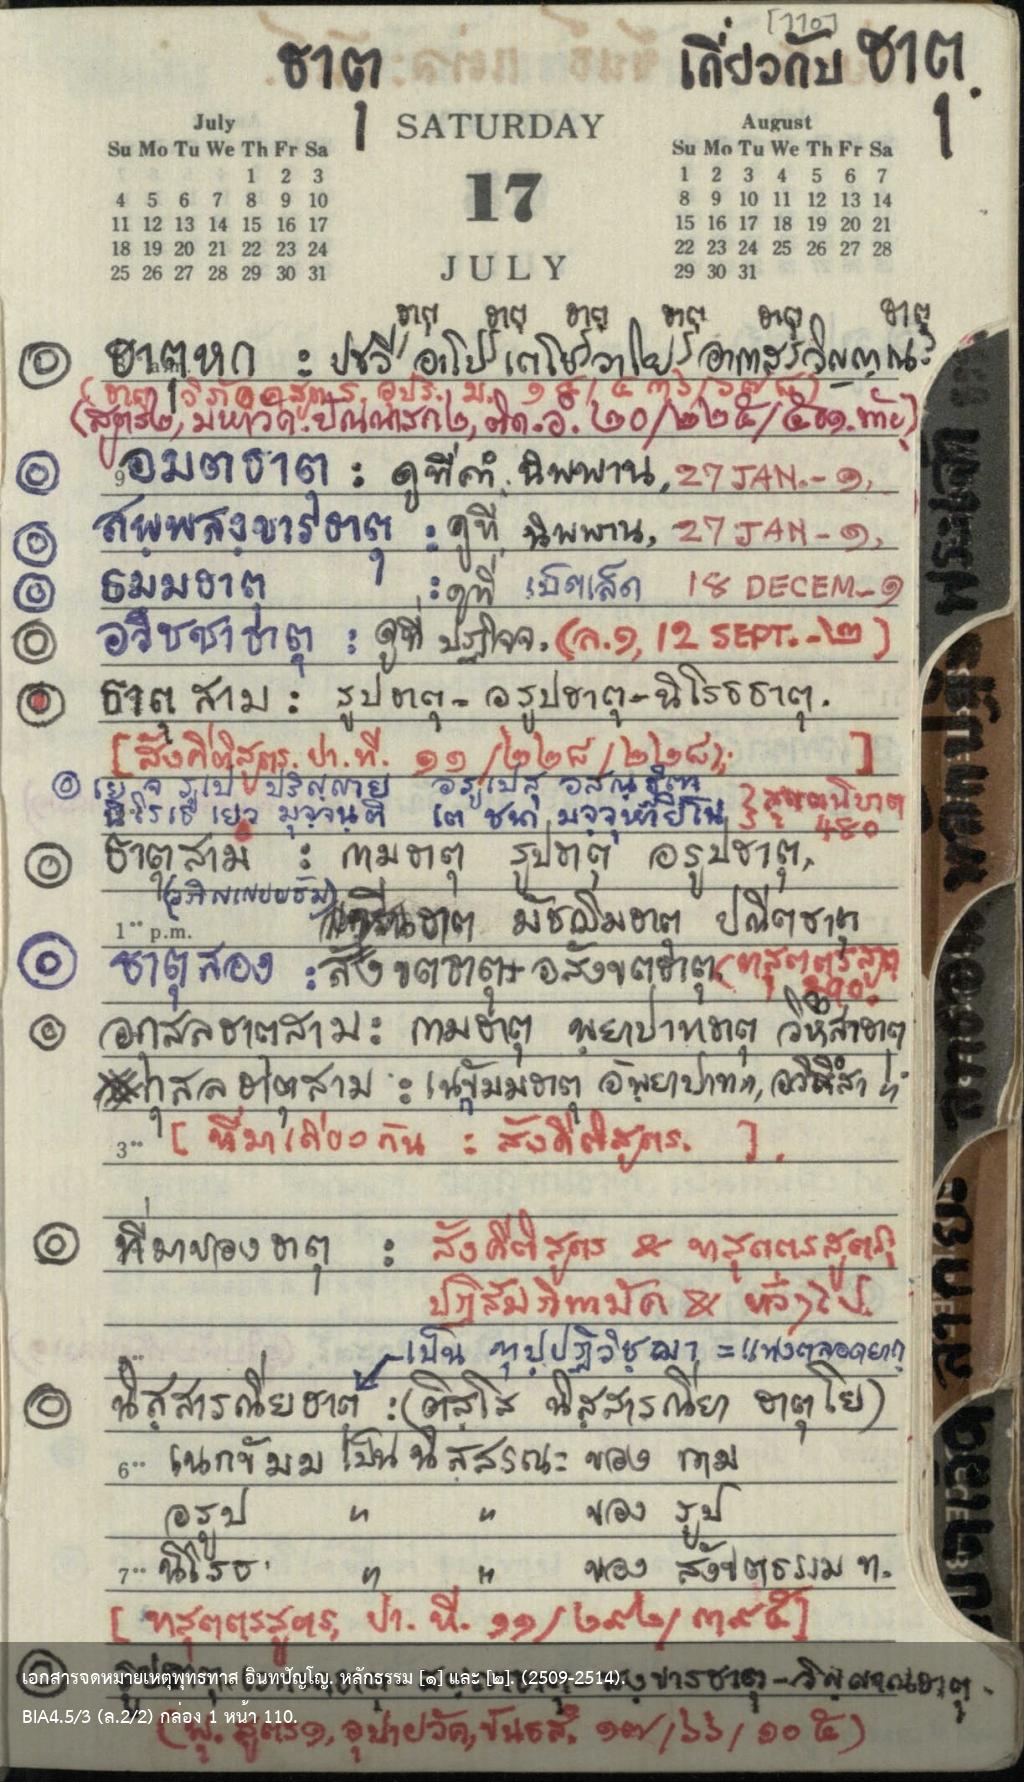 [110]
ธาตุ เกี่ยวกับ ธาตุ.
July SATURDAY August
Su Mo Tu We Th Fr Sa
1 2 3
4 5 6 7 8 9 10
11 12 13 14 15 16 17
18 19 20 21 22 23 24
25 26 27 28 29 30 31
17
JULY
Su Mo Tu We Th Fr Sa
1 2 3 4 5 6 7
8 9 10 11 12 13 14
15 16 17 18 19 20 21
22 23 24 25 26 27 28
29 30 31
ธาตุ ธาตุ ธาตุ ธาตุ ธาตุ ธาตุ
ธาตุหก : ปฐวี อาโป เตโช วาโย อากาส วิญฺญาณ
(ธาตุวิภังคสูตร อุปริ. ม. ๑๔/๔๓๖/๖๗๘)
(สูตร ๒, มหาวัค. ปัณณาสก์ ๒, ติก. อํ. ๒๐/๒๒๕/
อมตธาตุ : ดูที่คำ นิพพาน, 27 JAN.-๑,
สพฺพสงฺขารธาตุ : ดูที่ นิพพาน, 27 JAN-๑,
ธมมธาตุ : ดูที่ เบ็ดเล็ด 18 DECEM-๑
อวิชชาธาตุ : ดูที่ ปฏิจจ. (ล.๑, 12 SEPT.-๒)
ธาตุสาม : รูปธาตุ - อรูปธาตุ - นิโรธธาตุ.
[สังคีติสูตร. ปา. ที. ๑๑/๒๒๘/๒๒๘);]
เย จ รูเป ปริญฺญาย อรูเปสุ อสณฺฐิตา
นิโรเธ เยว มุจฺจนฺติ เต ชนา มจฺจุหายิโน } สุตตนิบาต 480
ธาตุสาม : กามธาตุ รูปธาตุ อรูปธาตุ,
1ºº p.m. ธาตุ มัชฌิมธาตุ ปณีตธาตุ
ธาตุสอง : สังขตธาตุ + อสังขตธาตุ (ทสุตตรสูต
อกุสลธาตุสาม : กามธาตุ พฺยาปาทธาตุ วิหิงสาธาตุ
กุสลธาตุสาม : เนกฺขัมมธาตุ อัพฺยาปาท", อวิหิงสา ธา
3ºº [ที่มาเดียวกัน : สังคีติสูตร. ].
ที่มาของธาตุ : สังคีติสูตร & ทสุตตรสูตร
ปฏิสัมภิทามัค & ทั่วๆ ไป.
เป็น ทุปฺปฏิวิชฺฌา = แทงตลอดยาก
นิสฺสารณียธาตุ : (ติสฺโส นิสฺสารณียา ธาตุโย)
6ºº เนกขัมม เป็น นิสฺสรณะ ของ กาม
อรูป " " ของ รูป
7ºº นิโรธ " " ของ สังขตธรรม ท.
[ทสุตตรสูตร, ปา. ที. ๑๑/๒๙๒/๓๙๕]
สังขารธาตุ - วิญฺญาณธาตุ.
เอกสารจดหมายเหตุพุทธทาส อินทปัญโญ. หลักธรรม [๑] และ [๒]. (2509-2514).
BIA4.5/3 (ล.2/2) กล่อง 1 หน้า 110.
สูตร ๑, อุปายวัค, ขันธสํ. ๑๗/๖๖/๑๐๕)